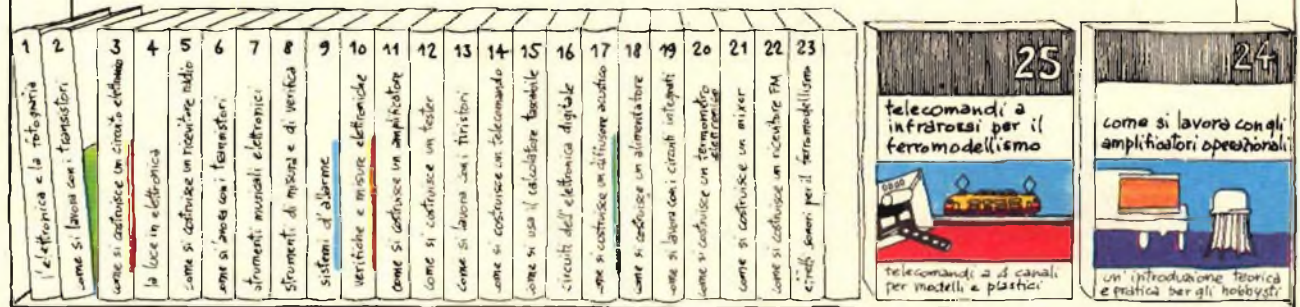 1 l'elettronica e la fotografia
2 come si lavora con i transistori
3 come si costruisce un circuito elettronico
4 la luce in elettronica
5 come si costruisce un ricevitore radio
6 come si lavora con i transistori
7 strumenti musicali elettronici
8 strumenti di misura e di verifica
9 sistemi d'allarme
10 verifiche e misure elettroniche
11 come si costruisce un amplificatore
12 come si costruisce un tester
13 come si lavora con i tiristori
14 come si costruisce un telecomando
15 come si usa il calcolatore tascabile
16 circuiti dell'elettronica digitale
17 come si costruisce un diffusore acustico
18 come si costruisce un alimentatore
19 come si lavora con i circuiti integrati
20 come si costruisce un termometro elettronico
21 come si costruisce un mixer
22 come si costruisce un ricevitore FM
23 effetti sonori per il ferromodellismo
25
telecomandi a
infrarossi per il
ferromodellismo
telecomandi a 4 canali
per modelli e plastici
24
come si lavora con gli
amplificatori operazionali
un'introduzione teorica
e pratica per gli hobbysti